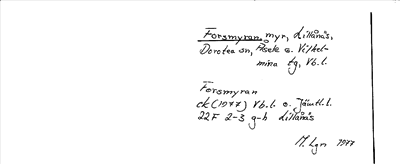 Forsmyran, myr, Lillånäs,
Dorotea sn, Åsele o. Vilhel-
mina tg, Vb.l.
Forsmyran
ek (1977) Vb.l. o. Jämtl.l.
22F 2-3 g-h Lillånäs
M. Lgn 1977